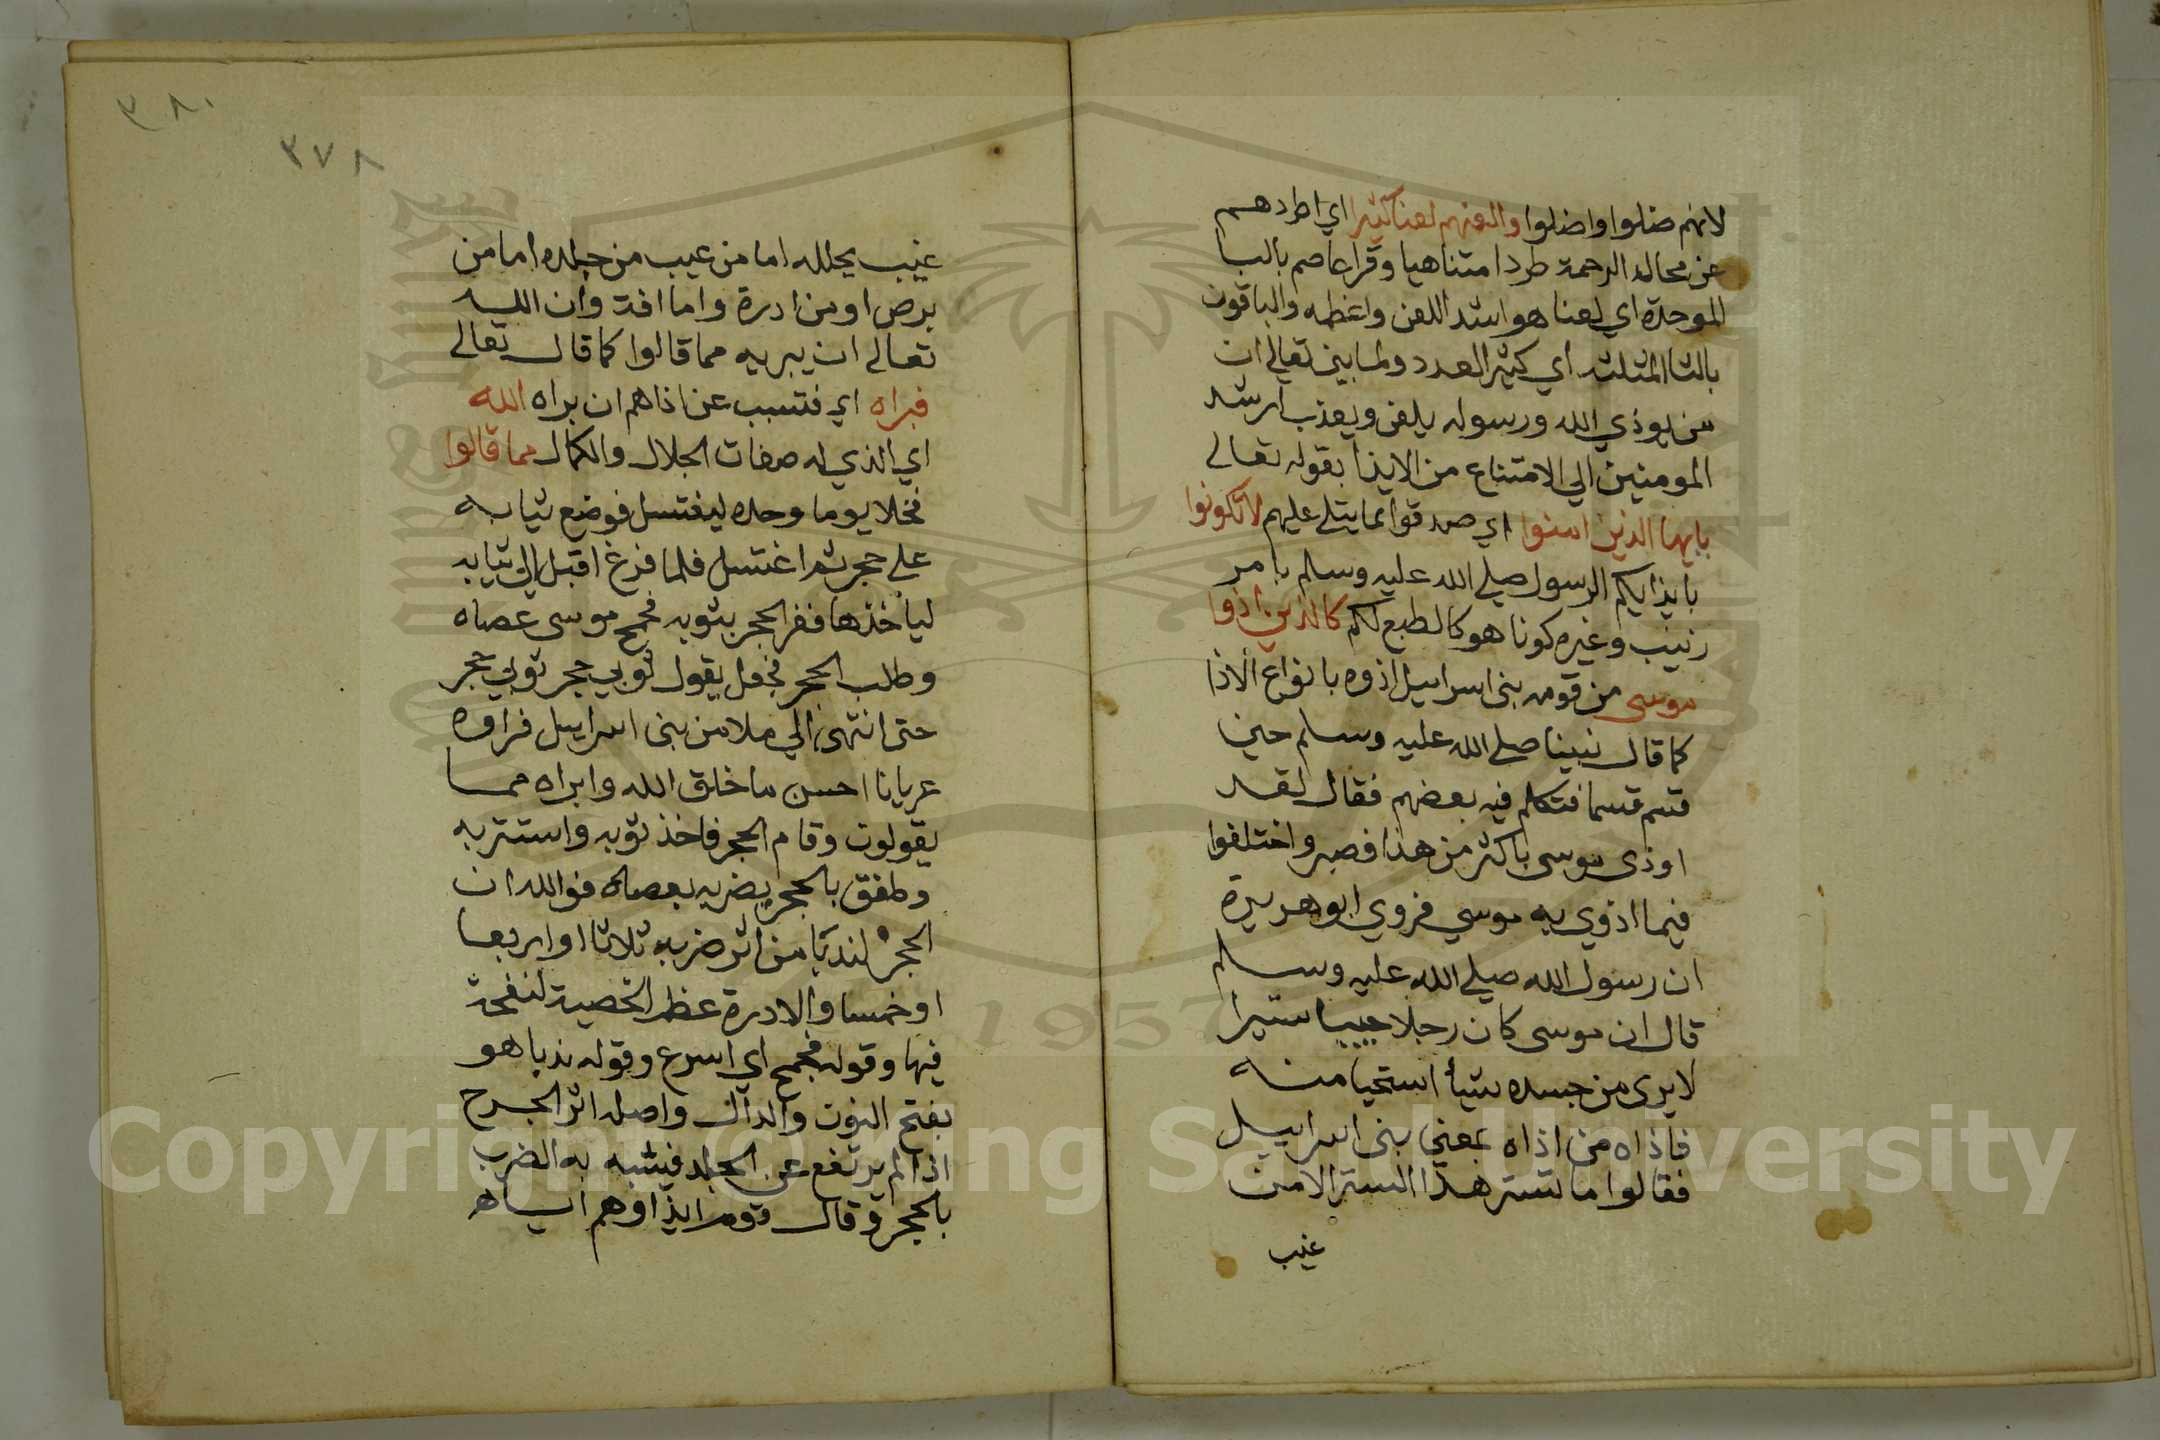 لانهم ضلوا واضلوا والعنهم لعنا كثيرا اي اطردهم
عن محال الرحمة طردا متناهيا وقرا عاصم بالبا
الموحدة اي لعنا هو اشد اللعن واعظمه والباقون
بالثا المثلثه اي كثير العدد ولما بين تعالى ان
من يوذي الله ورسوله يلعن ويعذب ارشد
المومنين الي الامتناع من الايذا بقوله تعالى
يايها الذين امنوا اي صدقوا بما يتلى عليهم لا تكونوا
بايذايكم الرسول صلى الله عليه وسلم بامر
زينب وغيره كونا هو كالطبع لكم كالذين اذوا
موسى من قومه بني اسراييل اذوه بانواع الاذا
كما قال نبينا صلى الله عليه وسلم حين
قسم قسما فتكلم فيه بعضهم فقال لقد
اوذى موسى باكثر من هذا فصبر واختلفوا
فيما اذوي به موسي فروي ابو هريرة
ان رسول الله صلى الله عليه وسلم
قال ان موسى كان رجلا حييا ستيرا
لا يرى من جسده شيأ استحيا منه
فاذاه من اذاه بمعنى بنى اسراييل
فقالوا ما تستر هذا الستر الا من
عيب
٣٨٠
٣٧٨
عيب بجلده اما من عيب من جلده اما من
برص او من ادرة واما افة وان الله
تعالى ان يبريه مما قالوا كما قال تعالى
فبراه اي فتسبب عن اذاهم ان براه الله
اي الذي له صفات الجلال والكمال مما قالوا
فخلا يوما وحده ليغتسل فوضع ثيابه
على حجر ثم اغتسل فلما فرغ اقبل الي ثيابه
لياخذها ففر الحجر بثوبه فجمح موسى عصاه
وطلب الحجر فجعل يقول ثوبي حجر ثوبي حجر
حتى انتهى الي ملا من بنى اسراييل فراوه
عريانا احسن ما خلق الله وابراه مما
يقولون وقام الحجر فاخذ ثوبه واستتر به
وطفق بالحجر يضربه بعصاه فوالله ان
الحجر لندبا من اثر ضربه ثلاثا او اربعا
او خمسا والادرة عظم الخصية لنفخة
فيها وقوله فجمح اي اسرع وقوله ندبا هو
بفتح النون والدال واصله اثر الجرح
اذا لم يرتفع عن الجلد فيشبه به الضرب
بالحجر وقال قوم ايذاوهم اياه
Copyright © King Saud University
1957